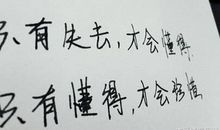 只有失去，才会懂得，
只有懂得，才会珍惜。